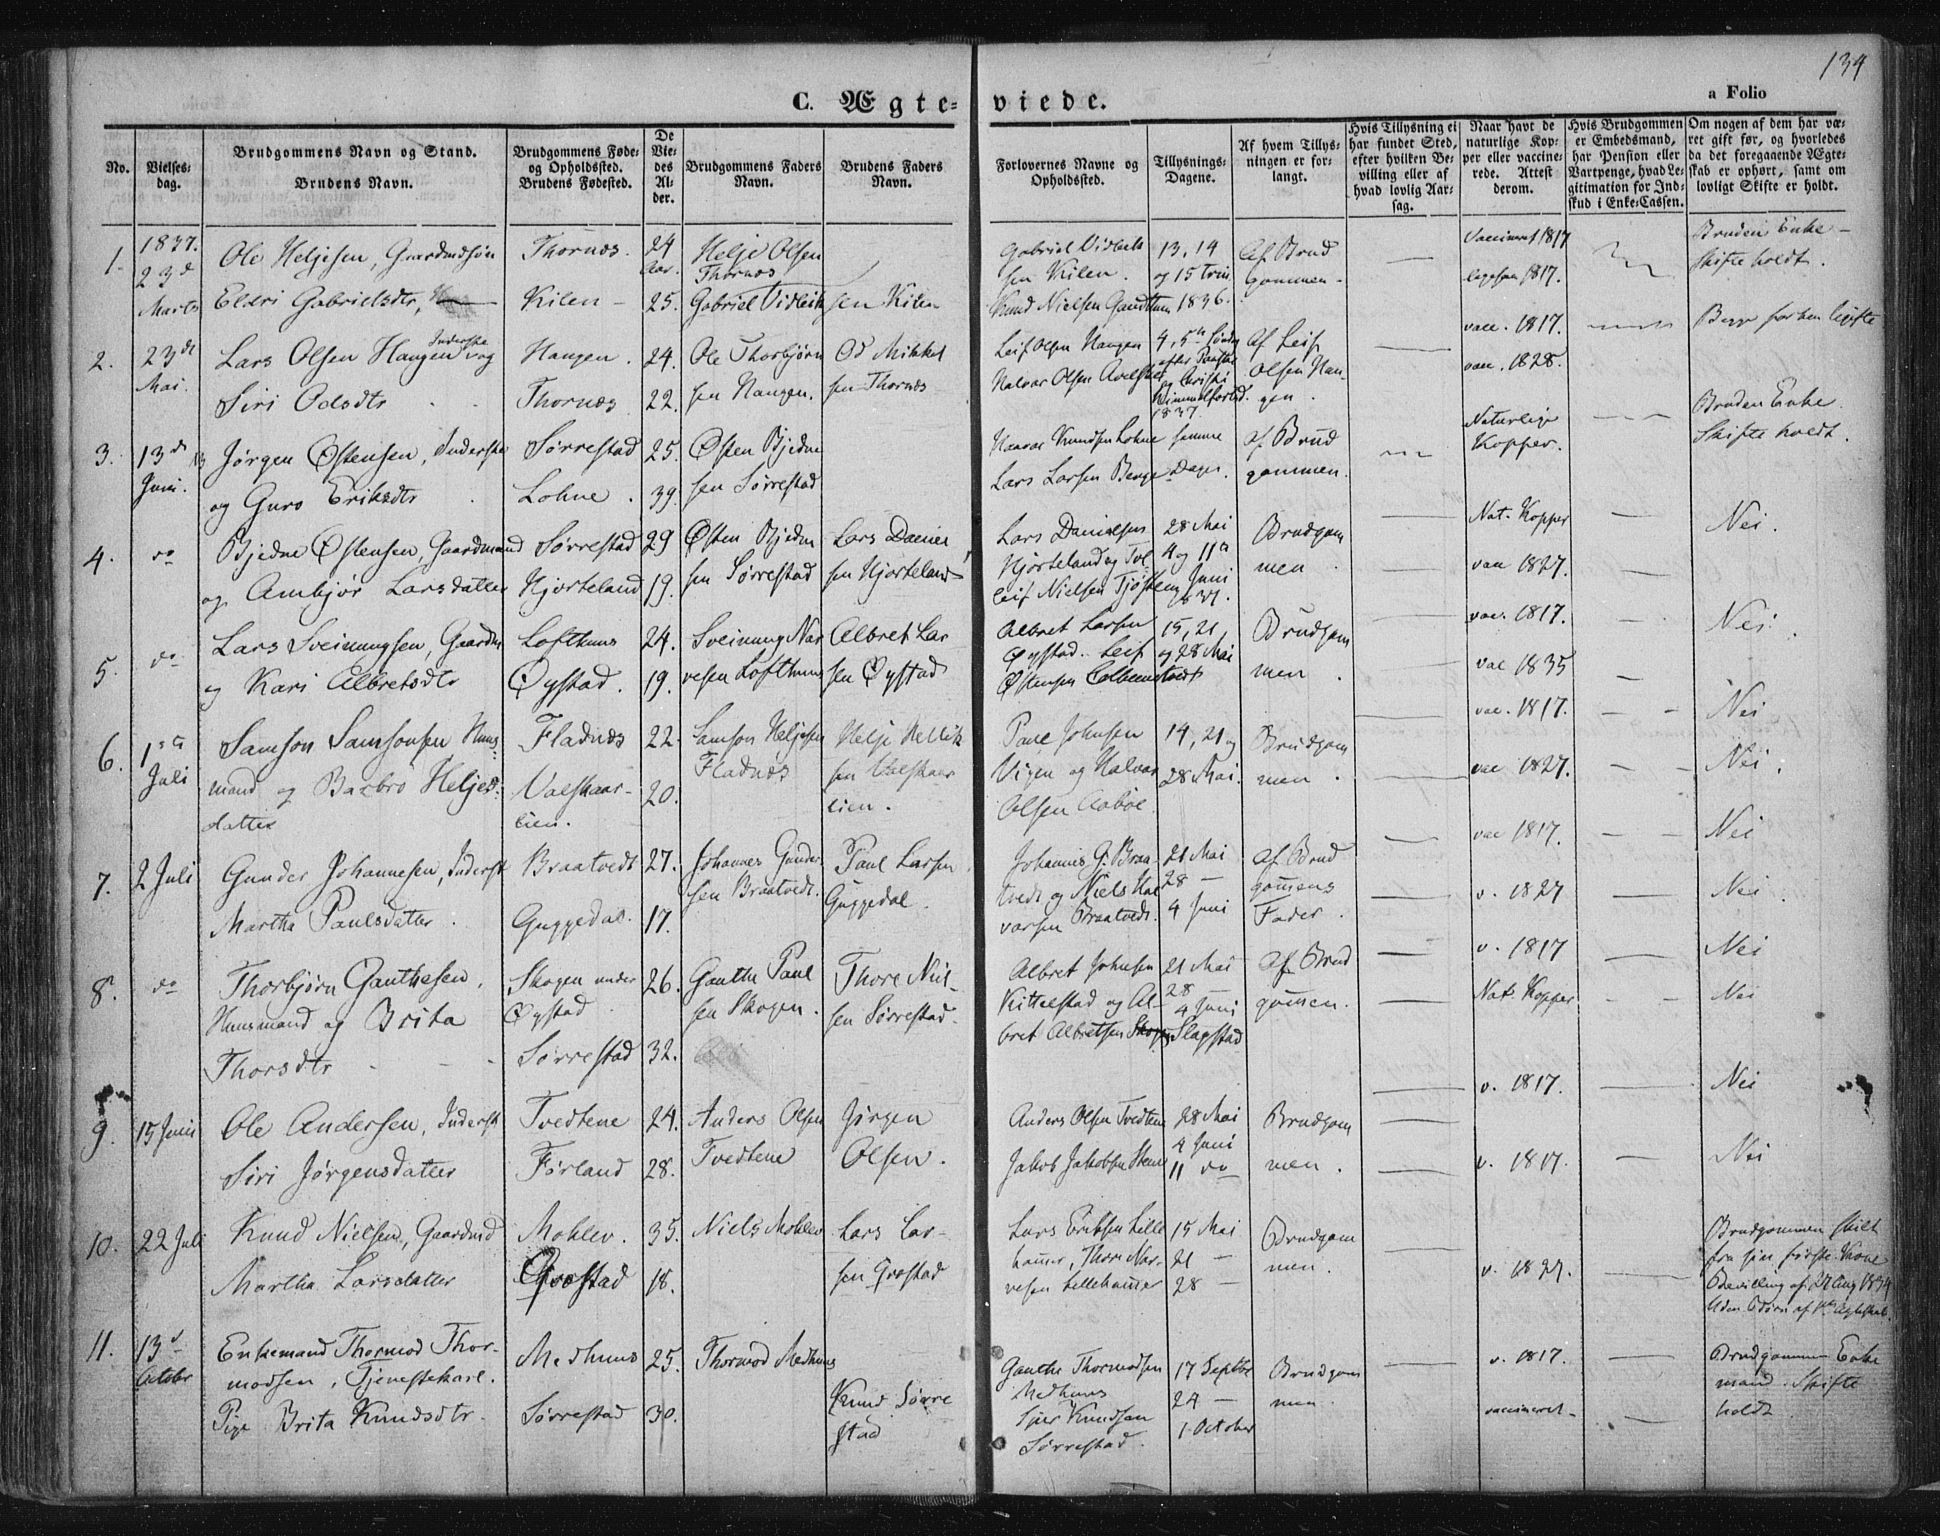 134
C. Ægte-viede.
a Folio
No.
Vielses-
dag.
Brudgommens Navn og Stand.
Brudens Navn.
Brudgommens Føde-
og Opholdssted.
Brudens Fødested.
De
Vie-
des
Al-
der.
Brudgommens Faders
Navn.
Brudens Faders
Navn.
Forlovernes Navne og
Opholdssted.
Tillysnings-
Dagene.
Af hvem Tillys-
ningen er for-
langt.
Hvis Tillysning ei
har fundet Sted,
efter hvilken Be-
villing eller af
hvad lovlig Aar-
sag.
Naar havt de
naturlige Kop-
per eller vaccine-
rede. Attest
derom.
Hvis Brudgommen
er Embedsmand,
har Pension eller
Vartpenge, hvad Le-
gitimation for Ind-
skud i Enke-Cassen.
Om nogen af dem har væ-
ret gift før, og hvorledes
da det foregaaende Ægte-
skab er ophørt, samt om
lovligt Skifte er holdt.
1.
1837.
23d
Marts
Ole Heljesen, Gaardmdsøn
Eldri Gabrielsdtr,
Thornæs
Kilen -
24
Aar.
25.
Helje Olsen
Thornæs
Gabriel Vidleik
sen Kilen
Gabriel Vidleik
sen Kilen.
Knud Nielsen
13, 14
og 15 Trin
1836.
Af Brud
gommen -
Vaccineret 1817
1817.
Bruden Enke -
Skifte holdt.
2.
23de
Mai.
Lars Olsen Haugen Inderste og
Siri Odsdtr
Haugen.
Thornæs
24.
22.
Ole Thorbjørn
sen Haugen.
Od Mikkel
sen Thornæs
Leif Olsen Haugen
Halvor Olsen
4, 5te Søndag
efter Paaske
og Christi
Himmelfartsd.
1837
Af Leif
Olsen Hau-
gen.
vacc. 1817.
vacc. 1828.
3.
13de
Juni.
Jørgen Østensen, Inderste
og Guro Eriksdtr
Sørrestad
Lohne.
25.
39.
Østen Bjedne
sen Sørrestad
Knudsen Lohne
Lars Larsen Berge
samme
Dage.
af Brud
gommen.
Naturlige
Kopper.
Bruden Enke.
Skifte holdt.
4.
do
Bjedne Østensen, Gaardmand
og Ambjør Larsdatter
Sørrestad
Hjorteland
29
19.
Østen Bjedne
sen Sørrestad
Lars Daniel
sen Hjorteland
Lars Danielsen
Hjorteland og Tol
leif Nielsen Tjøstem
28 Mai
4 og 11te
Juni
1837.
Brudgom
men.
Nat. Kopper
vacc 1827.
Nei.
5.
do
Lars Sveinungsen, Gaardm
og Kari Albretsdtr
Lofthuus
Øystad.
24.
19.
Sveinung Nar
vesen Lofthuus
Albret Lar
sen Øystad
Albret Larsen
Øystad. Leif
Østensen
15, 21
og 28 Mai
Brudgom
men.
vac. 1817.
vac 1835
Nei.
6.
1ste
Juli
Samson Samsonsen Huus-
mand og Barbro Heljes-
datter
Fladnæs
Valskaar-
lien.
22.
20.
Samson Heljesen
Fladnæs
Helje Hellik
sen Valskaar
lien.
Paul Johnsen
Vigen og Halvor
Olsen Aaboe
14, 21 og
28 Mai.
Brudgom
men.
vac. 1817.
vac 1827.
Nei
Nei.
7.
2 Juli
Gunder Johannesen, Inderst
Martha Paulsdatter.
Braatvedt
Guggedal.
27.
17.
Johannes Gunder
sen Braatvedt.
Paul Larsen
Guggedal.
Johannes G. Braa-
tvedt og Niels Hal
vorsen Braatvedt.
21 Mai
28 -
4 Juni
Af Brud
gomens
Fader.
vac 1817.
v. 1827
Nei
Nei.
8.
do
Thorbjørn Gauthesen,
Huusmand og Brita
Thorsdtr
Skogen under
Øystad
Sørrestad
26.
32.
Gauthe Paul
sen Skogen.
Thore Niel-
sen Sørrestad.
Albret Johnsen
Kittelstad og Al-
bret Albretsen Slagstad
21 Mai
28 -
4 Juni
Af Brud
gomen.
v. 1817
Nat Kopper
Nei
Nei
9.
15 Juni
Ole Andersen, Inderst
Siri Jørgensdatter
Tvedtene
Førland
24.
28.
Anders Olsen
Tvedtene
Jørgen
Olsen.
Anders Olsen Tvedtene
Jakob Jakobsen
28 Mai
4 Juni
11 do
Brudgom
men.
v. 1817.
v. 1817.
Nei
Nei
10.
22 Juli
Knud Nielsen, Gaardmd
Martha Larsdatter
Mohlev.
Qvæstad
35.
18.
Niels Mohlev
Lars Lar-
sen Qvæstad
Lars Eriksen Lille
hamer, Thore Nar-
vesen Lillehamer
15 Mai
21 -
28 -
Brudgom
men.
v. 1827.
Brudgommen skilt
fra sin første Kone
Bevilling af 27 Aug 1834
Uden Børn af 1ste Ægteskab.
11.
13d
October
Enkemand Thormod Thor-
modsen, Tjenestekarl.
Pige Brita Knudsdtr.
Medhuus
Sørrestad
25.
30.
Thormod Medhuus
Knud Sørre
stad
Gauthe Thormodsen
Medhuus
Siur Knudsen
Sørrestad.
17 Septbr
24 -
1 October
Brudgom
men.
v. 1817.
vaccineret -
Brudgommen Enke
mand. Skifte
holdt